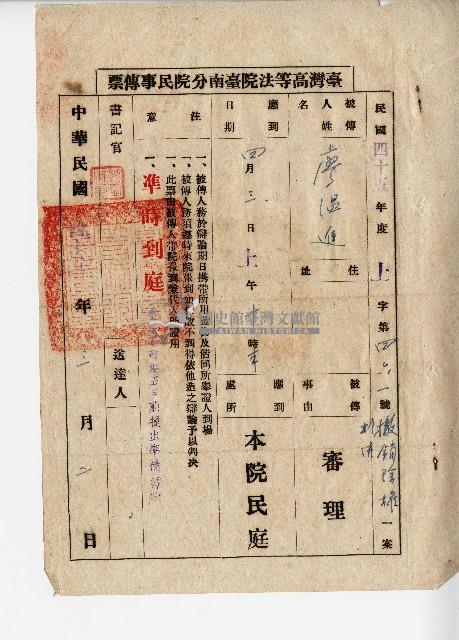 臺灣高等法院臺南分院民事傳票
民國四十五年度上字第四六一號撤銷除權判決一案
被傳人姓名
廖温進
住址
被傳事由
審理
應到日期
四月三日上午十時半
應到處所
本院民庭
注意
一、被傳人務於辯論期日携帶所用證物及偕同所舉證人到場
一、被傳人務須遵時來院報到如有故不到得依他造之辯論予以判決
一、此票由被傳人帶院報到案代入門證用
一、準時到庭
書記官
送達人
中華民國 年 三 月 二 日
國史館臺灣文獻館
TAIWAN HISTORICA